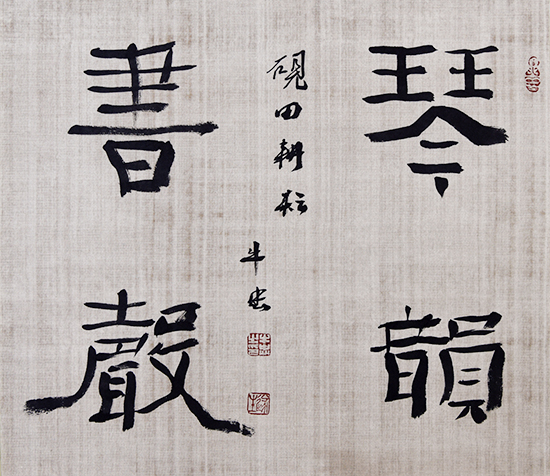 琴韻
硯田耕耘
牛
書聲